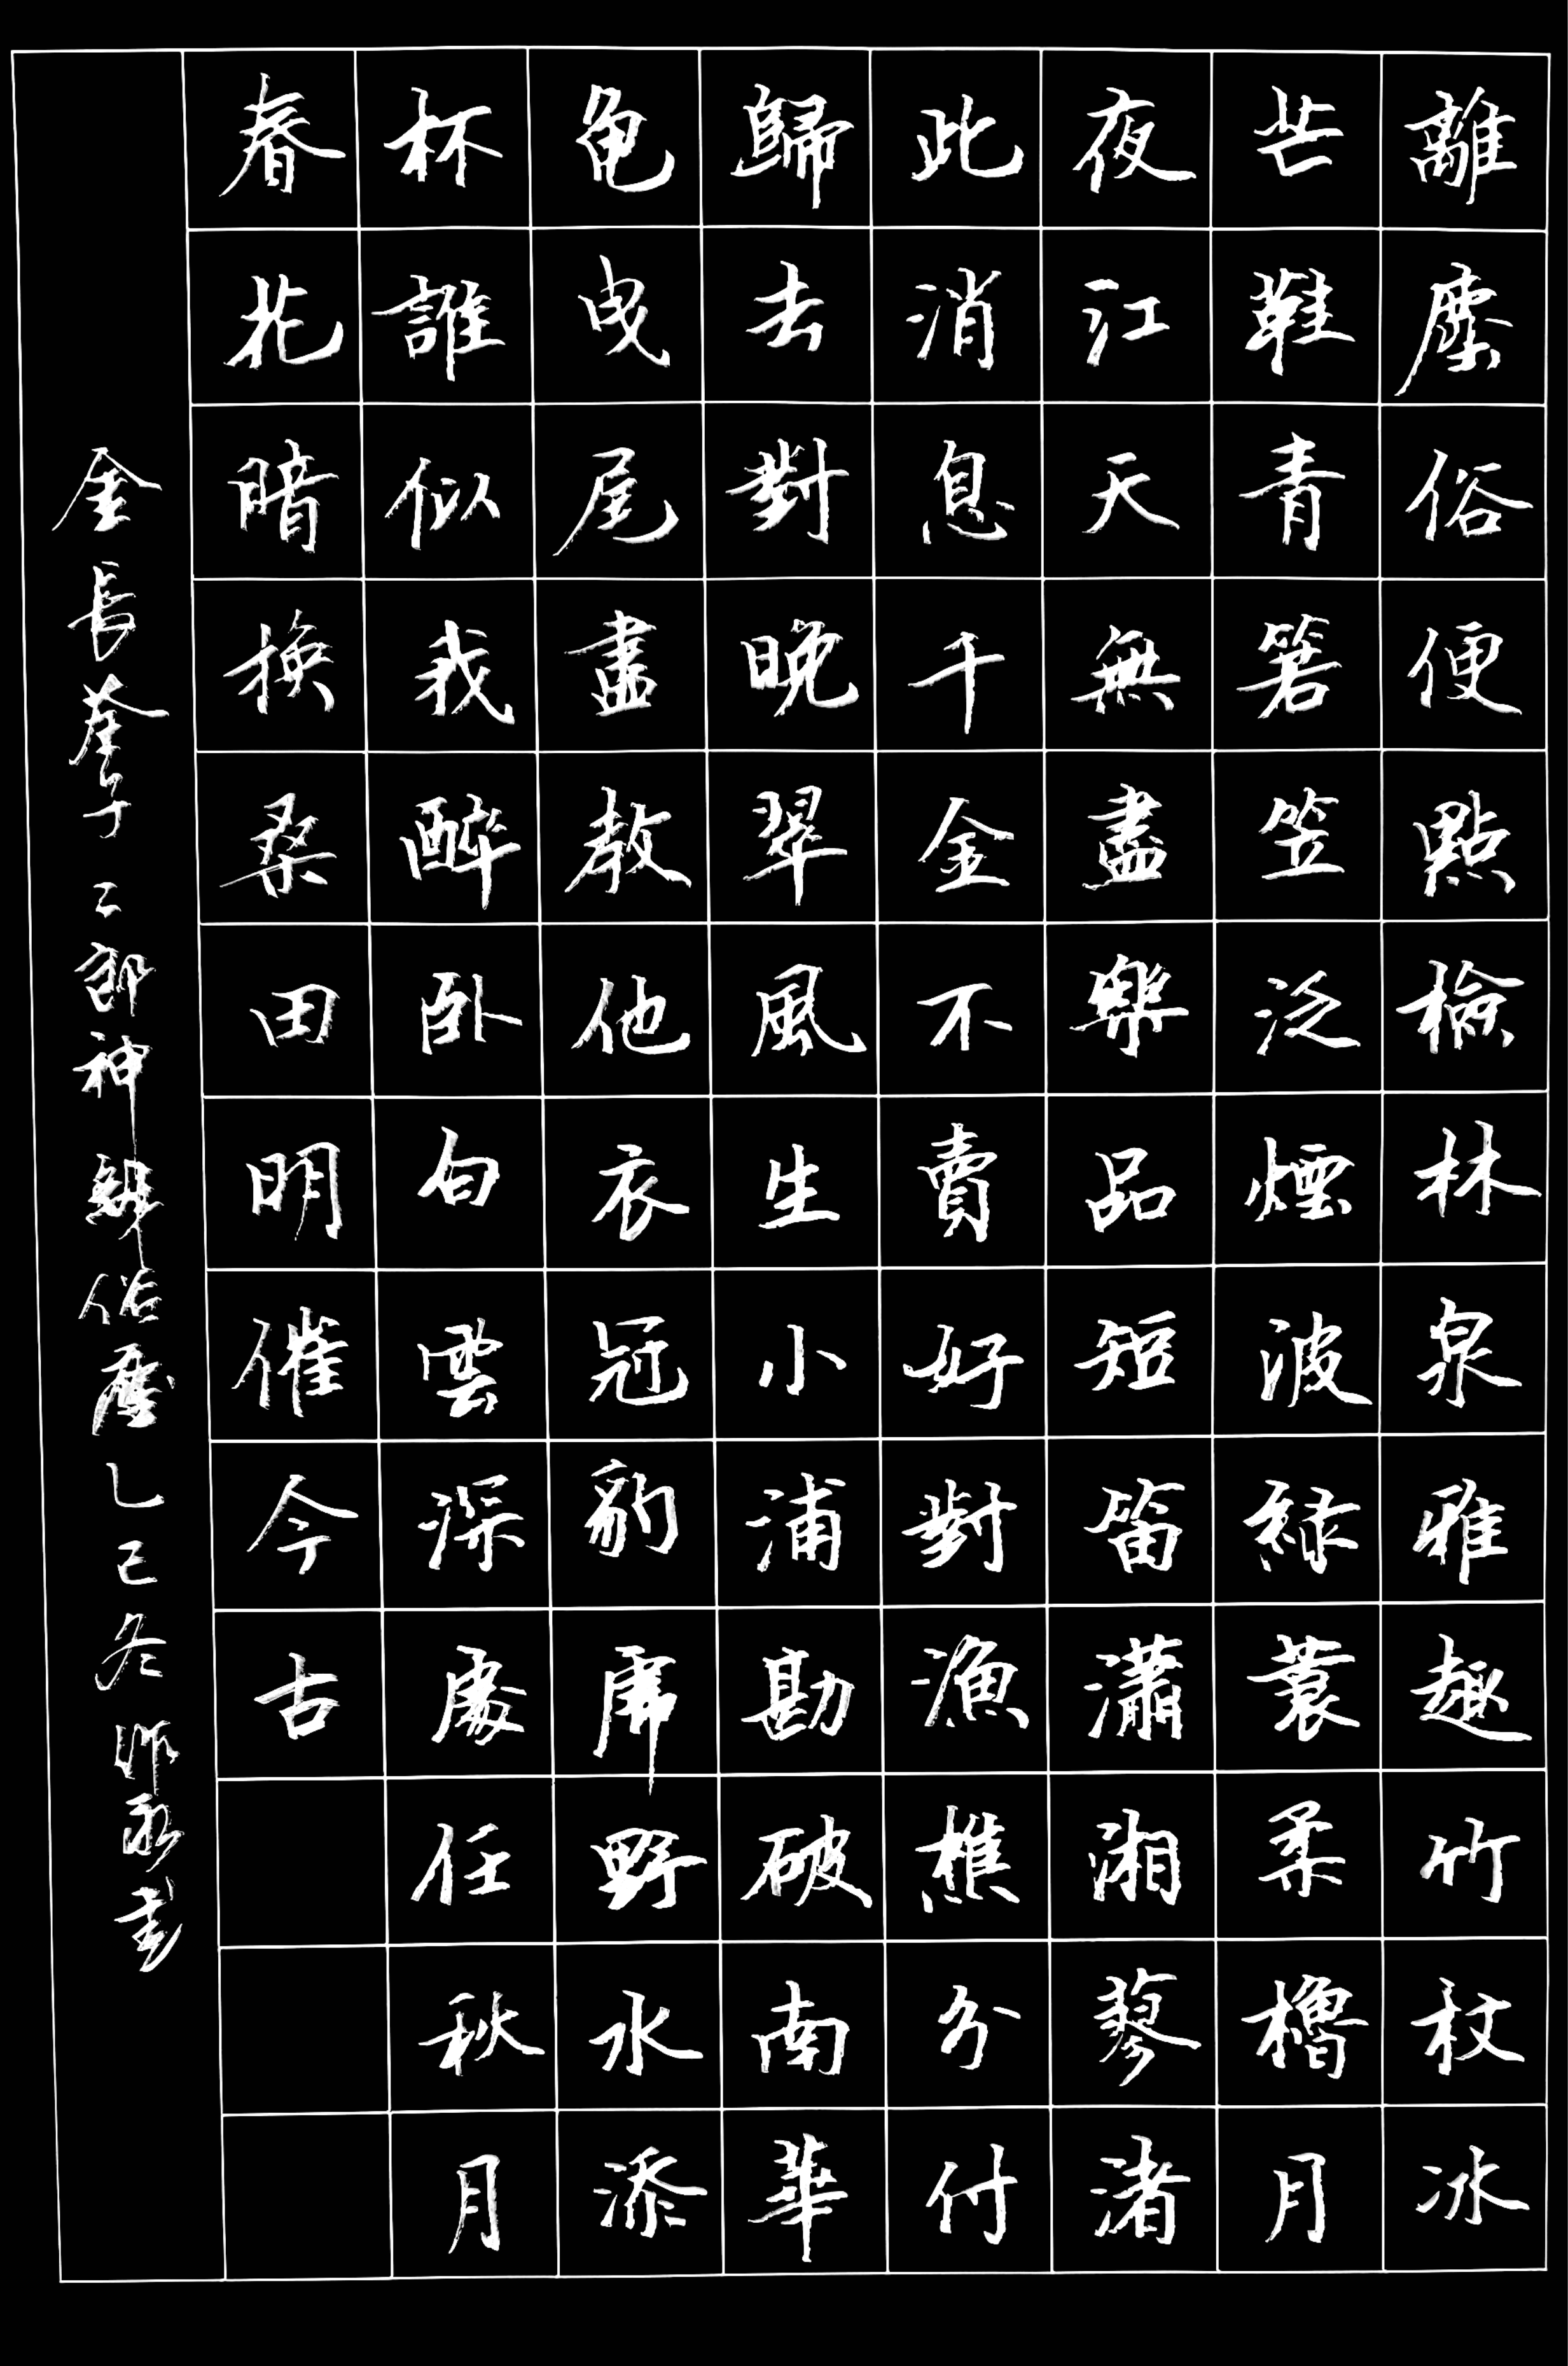 離塵俗便點檢林泉雅趣竹杖冰
芒鞋青箬笠泛煙波綠蓑柔櫓月
夜江天無盡樂品短笛瀟湘蓼渚
此消息千金不賣好對漁樵分付
歸去對晚翠風生小浦勘破南華
龜曳尾盡教他衣冠豹虎野水添
杯誰似我醉臥白雲深處任秋月
春花暗換桑田明催今古
金長筌子二郎神 辭俗塵 乙巳冬